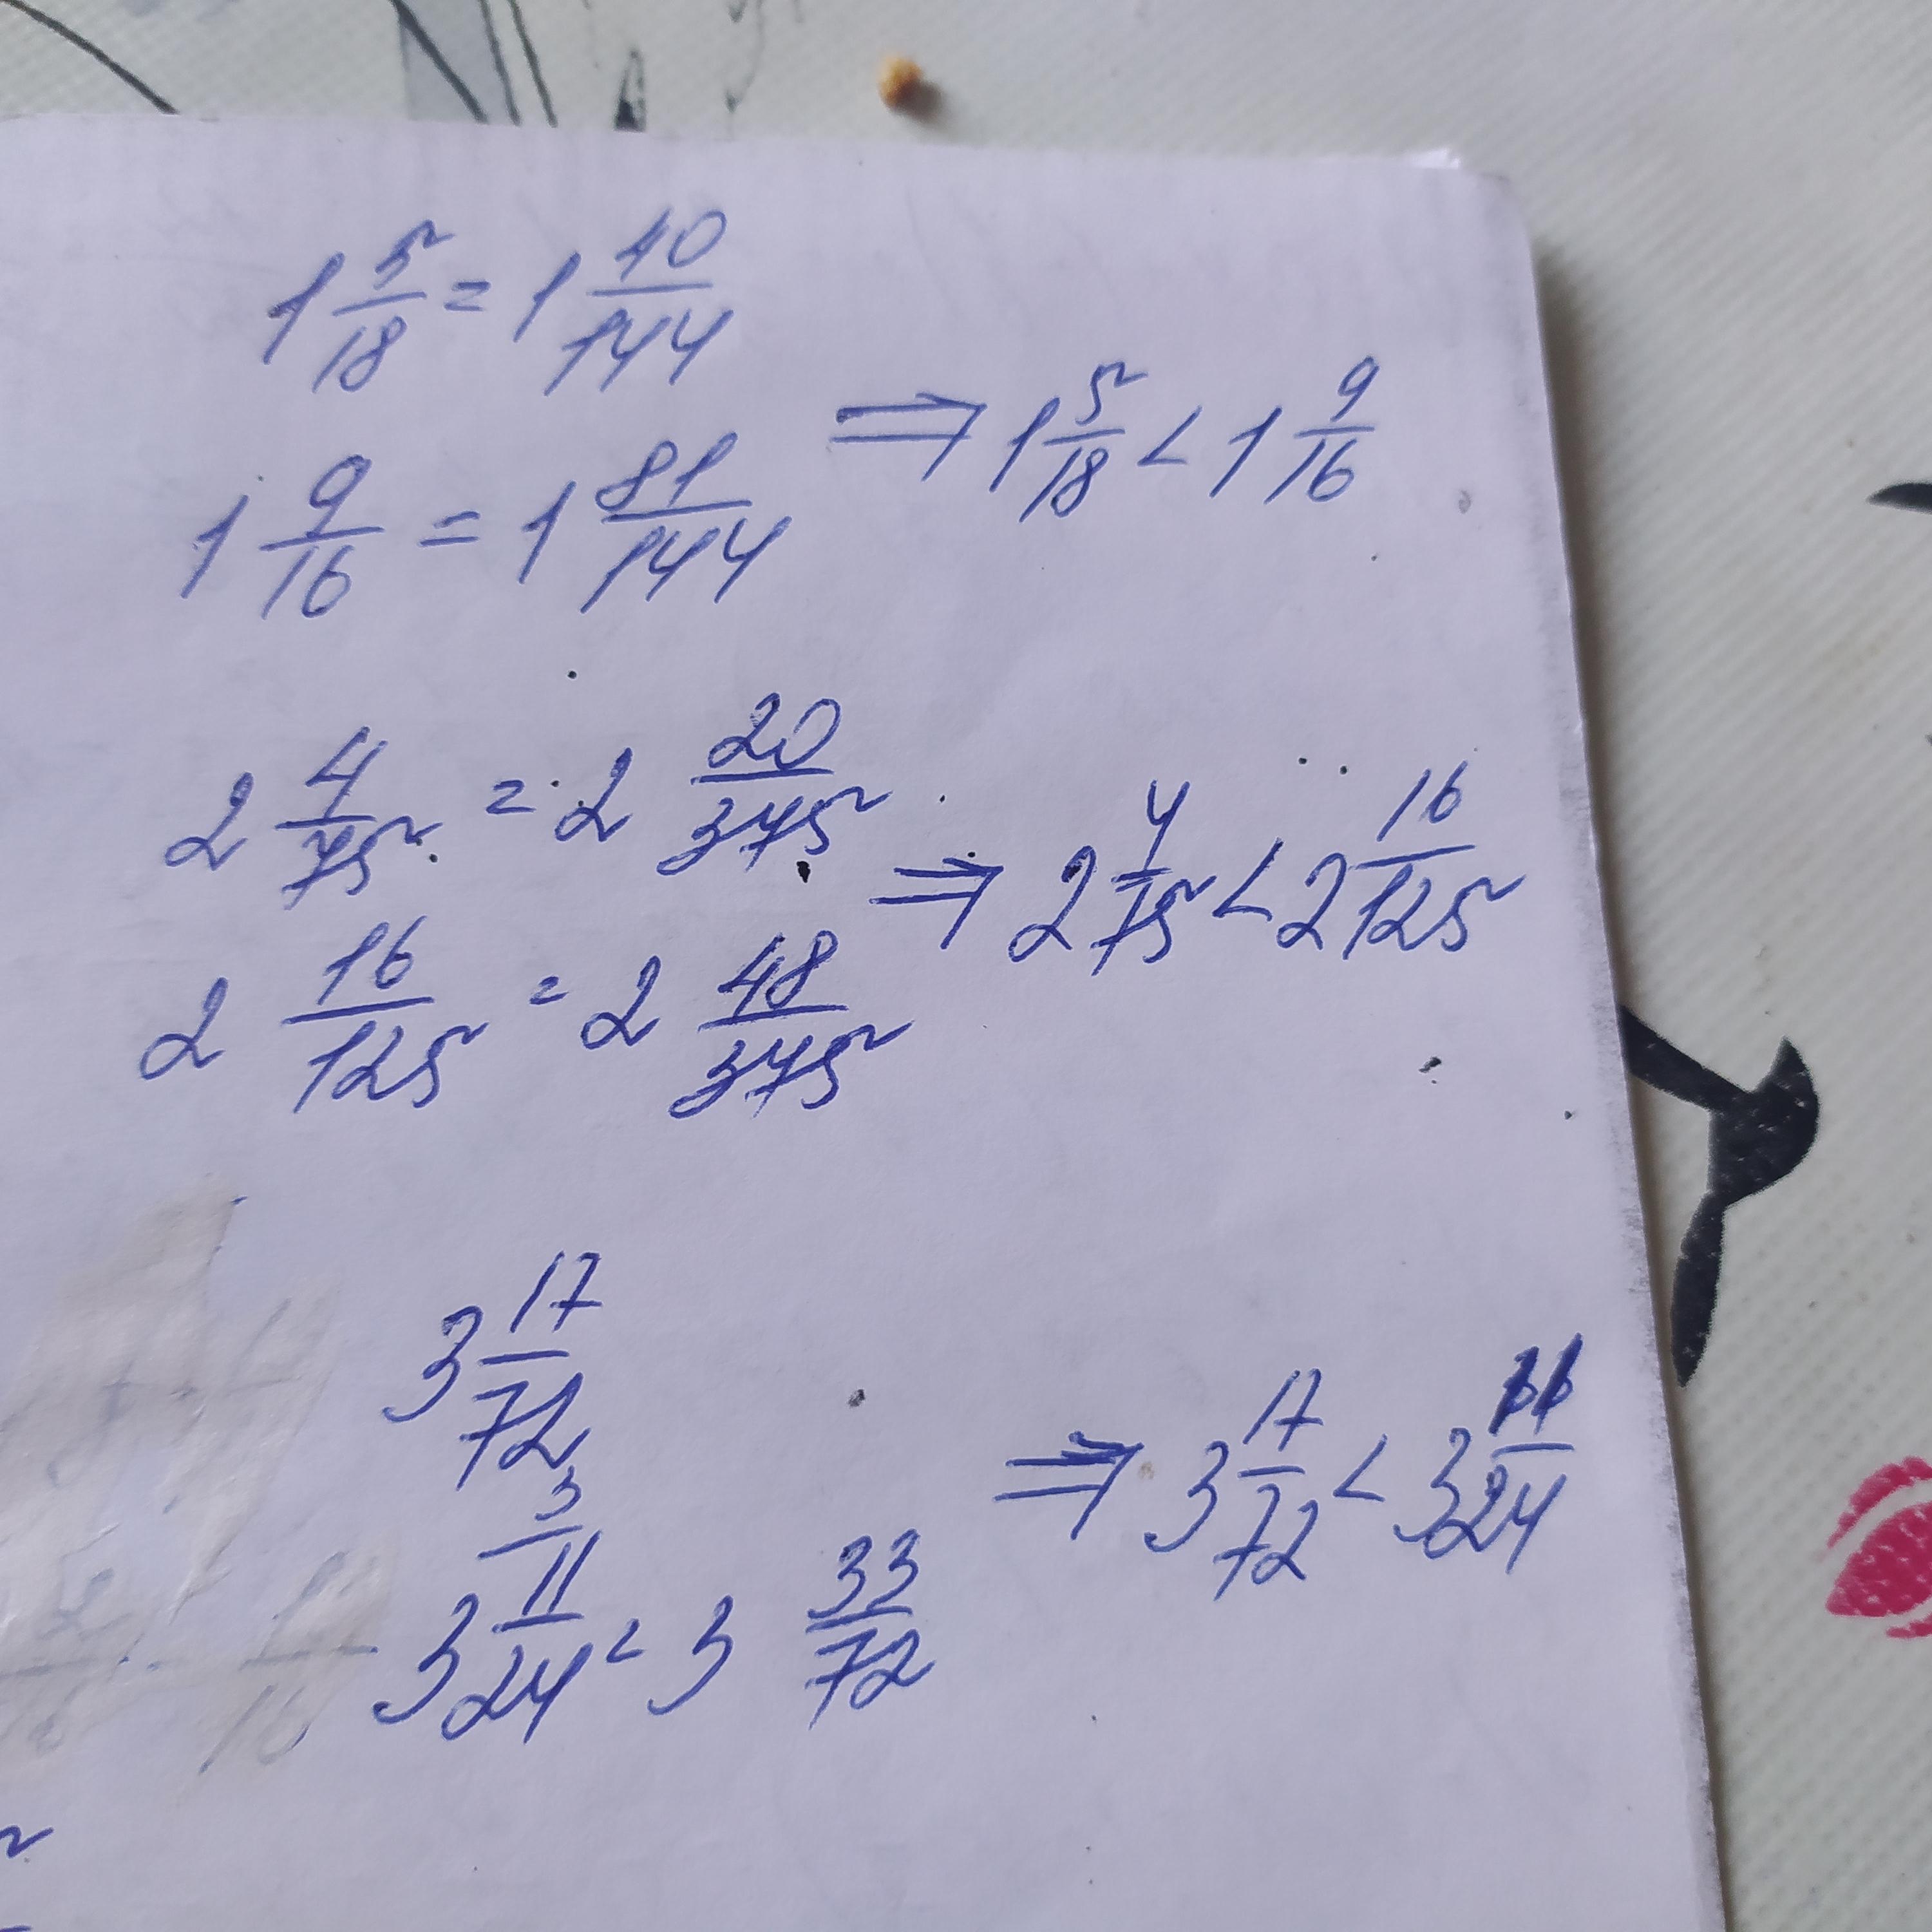 1 5/18 = 1 40/144
1 9/16 = 1 81/144
⇒ 1 5/18 < 1 9/16
2 4/75 = 2 20/375
2 16/125 = 2 48/375
⇒ 2 4/75 < 2 16/125
3 17/72
3
3 11/24 = 3 33/72
⇒ 3 17/72 < 3 11/24